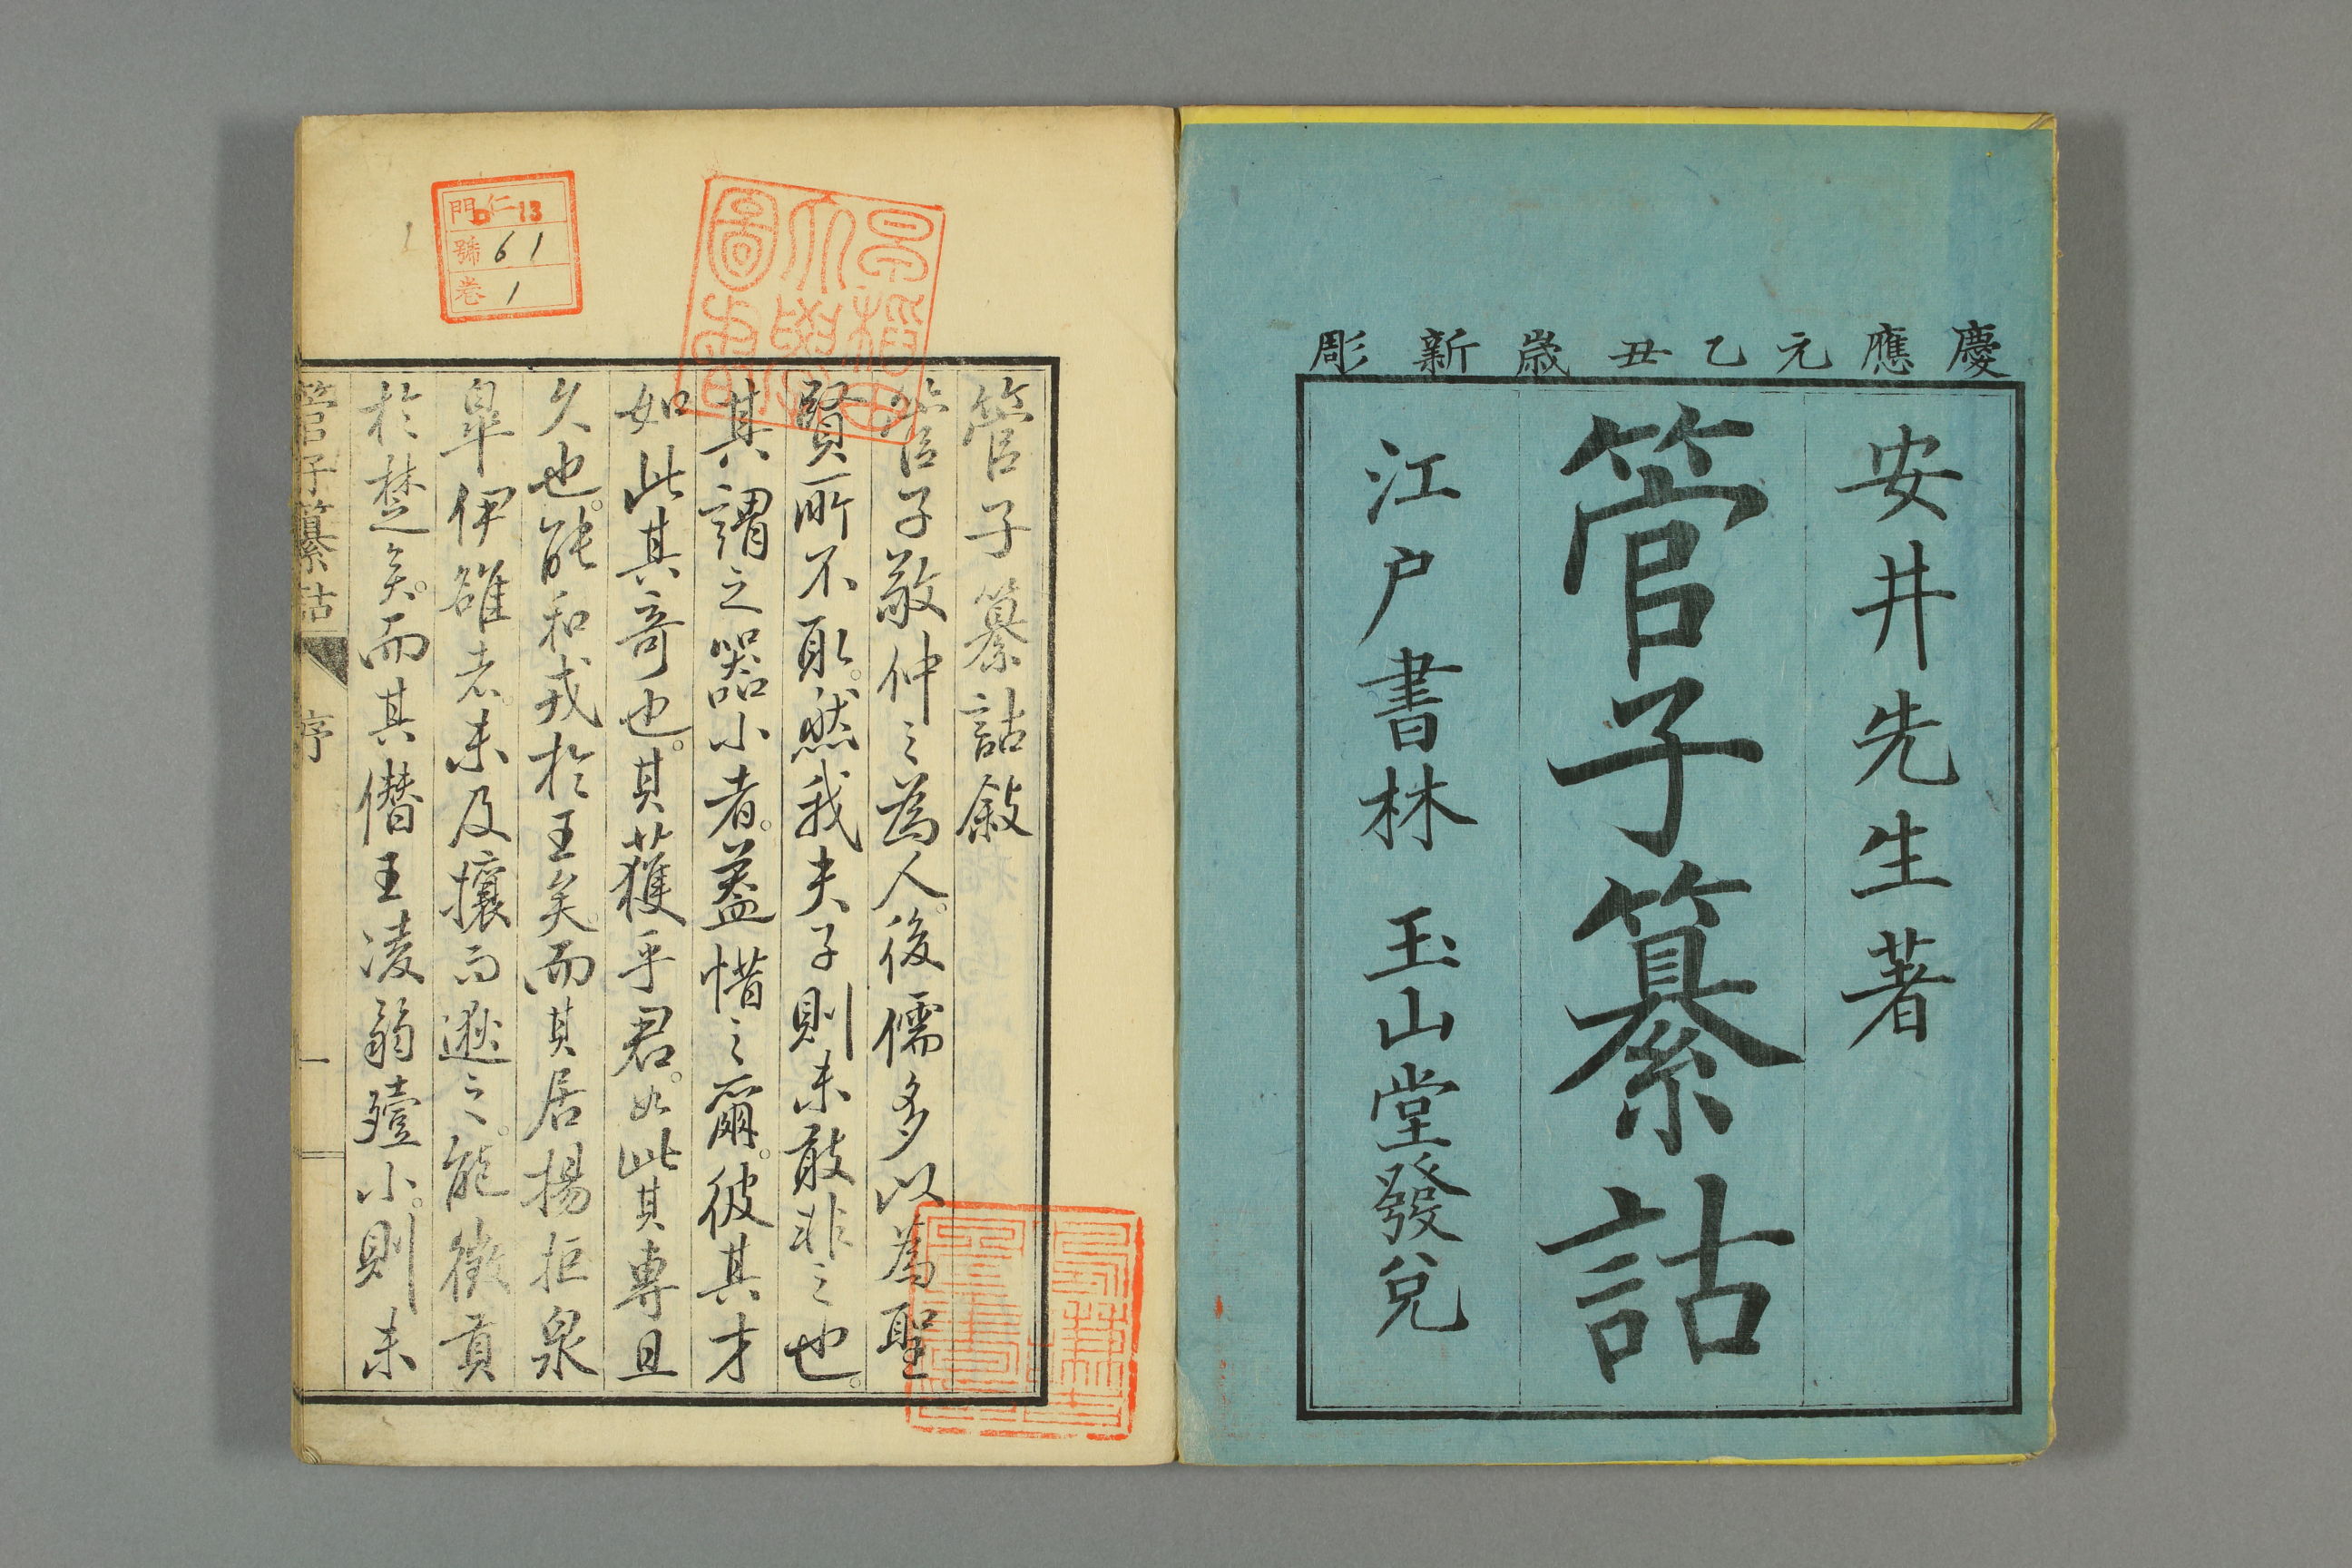 慶應元乙丑歲新彫
安井先生著
管子纂詁
江戶書林 玉山堂發兌
管子纂詁敍
管子敬仲之為人。後儒多以為聖
賢所不取。然我夫子則未敢非之也。
其謂之器小者。蓋惜之爾。彼其才
如此其奇也。其獲乎君。如此其專且
久也。能和戎於王矣。而其居揚拒泉
皐伊雒者。未及攘而逖之。能徵貢
於楚矣。而其僭王凌弱殪小。則未
管子纂詁 序 一
早稻田大學圖書
門 仁13
號 61
卷 1